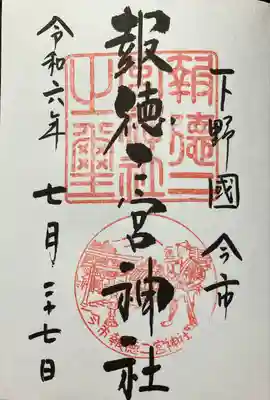 下野國 今市
報徳二宮神社
令和六年 七月二十七日
報德二
宮神社
之璽
今市 報徳二宮神社